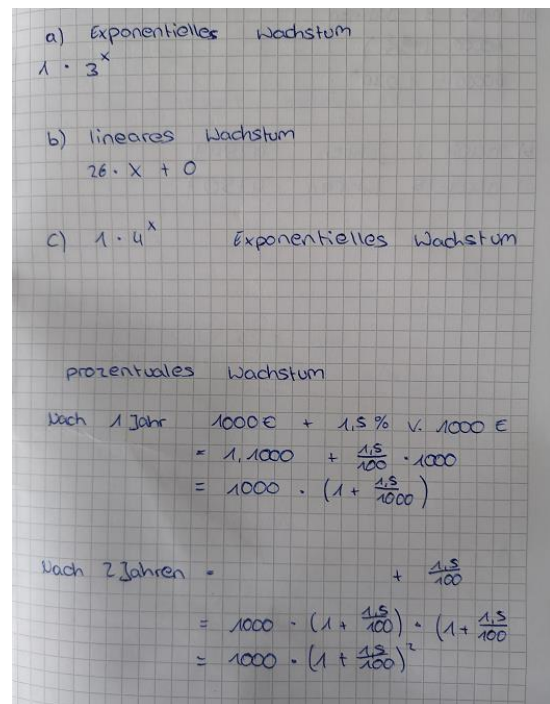 a) Exponentielles Wachstum
1 · 3^x
b) lineares Wachstum
26 · x + 0
c) 1 · 4^x Exponentielles Wachstum
prozentuales Wachstum
Nach 1 Jahr 1000€ + 1,5% v. 1000 €
= 1,1000 + 1,5/100 · 1000
= 1000 · (1 + 1,5/1000)
Nach 2 Jahren = + 1,5/100
= 1000 · (1 + 1,5/100) · (1 + 1,5/100
= 1000 · (1 + 1,5/100)²